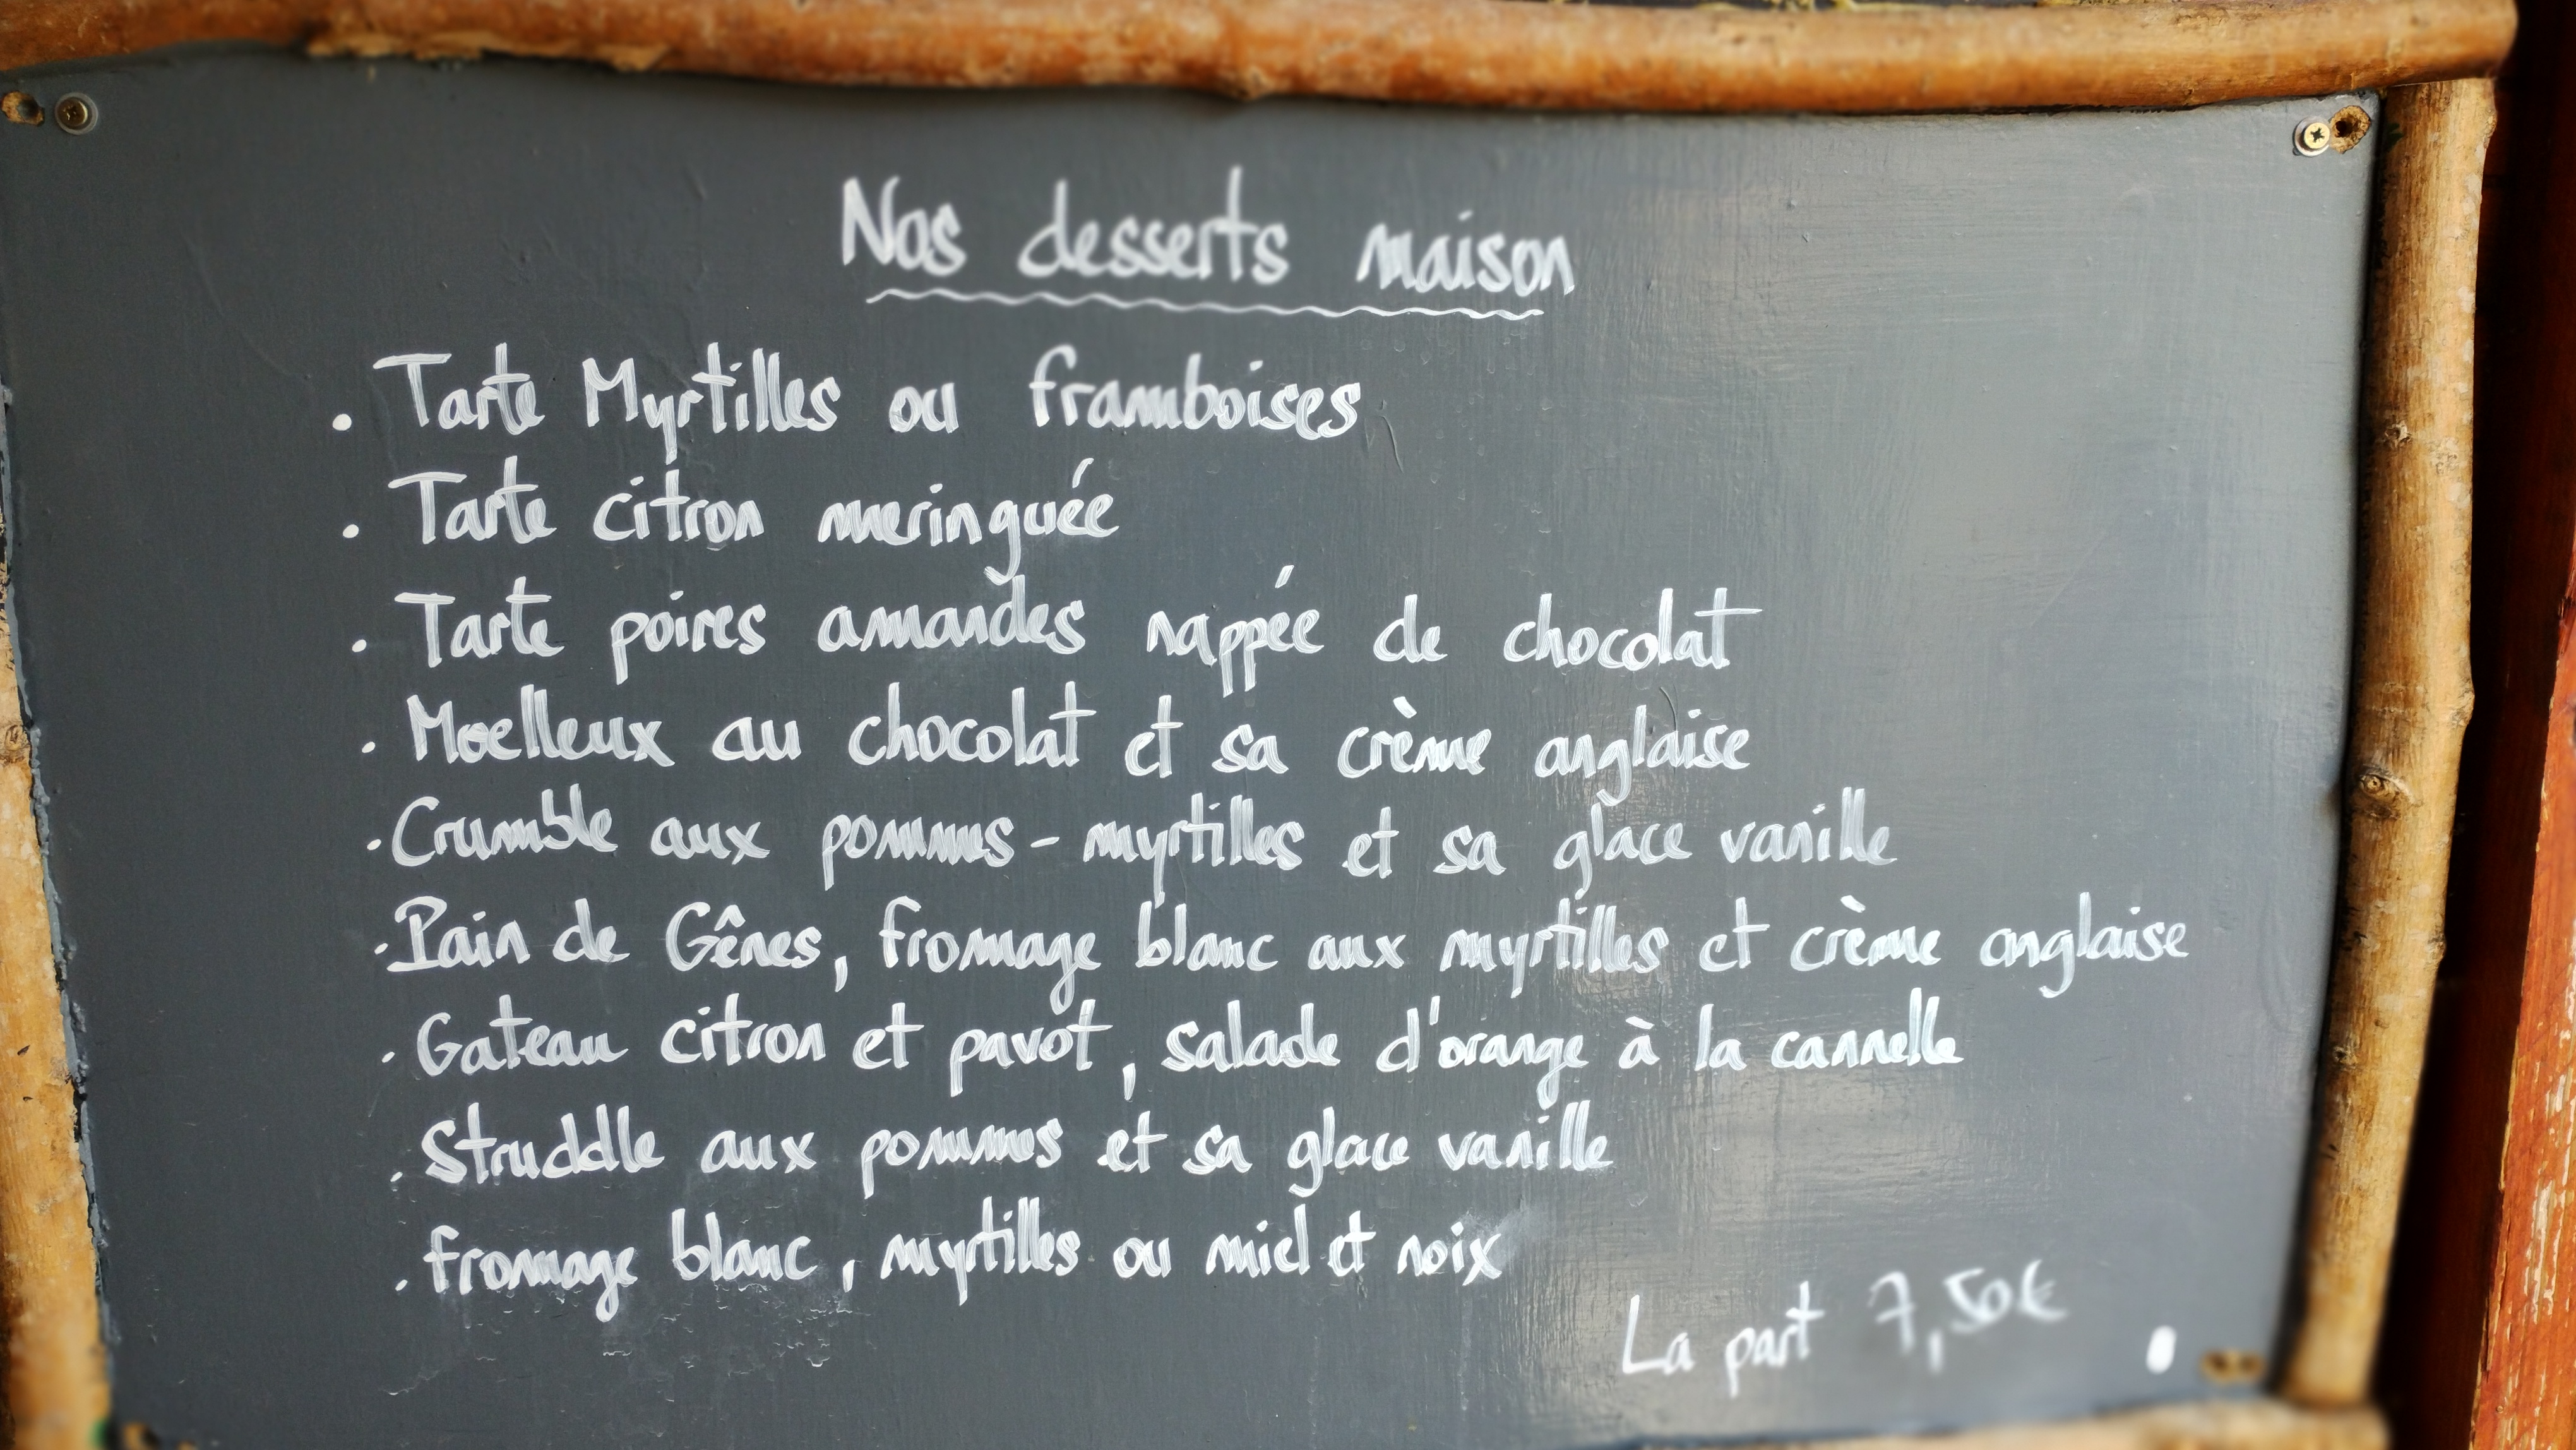 Nos desserts maison
. Tarte Myrtilles ou framboises
. Tarte citron meringuée
. Tarte poires amandes nappée de chocolat
. Moelleux au chocolat et sa crème anglaise
. Crumble aux pommes - myrtilles et sa glace vanille
. Pain de Gênes, fromage blanc aux myrtilles et crème anglaise
. Gateau citron et pavot, salade d'orange à la cannelle
. Struddle aux pommes et sa glace vanille
. fromage blanc, myrtilles ou miel et noix
La part 7,50€